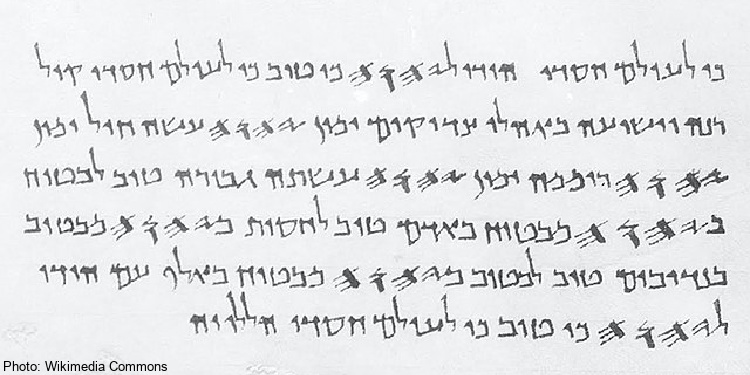 כי לעולם חסדו הודו ל𐤉𐤄𐤅𐤄 כי טוב כי לעולם חסדו קול
רנה וישועה באהלי צדיקים ימין 𐤉𐤄𐤅𐤄 עשה חיל ימין
𐤉𐤄𐤅𐤄 רוממה ימין 𐤉𐤄𐤅𐤄 עשתה גבורה טוב לבטוח
ב𐤉𐤄𐤅𐤄 מבטוח באדם טוב לחסות ב𐤉𐤄𐤅𐤄 מבטוב
בנדיבים טוב לבטוב ב𐤉𐤄𐤅𐤄 מבטוח באלף עם הודו
ל𐤉𐤄𐤅𐤄 כי טוב כי לעולם חסדו הללויה
Photo: Wikimedia Commons